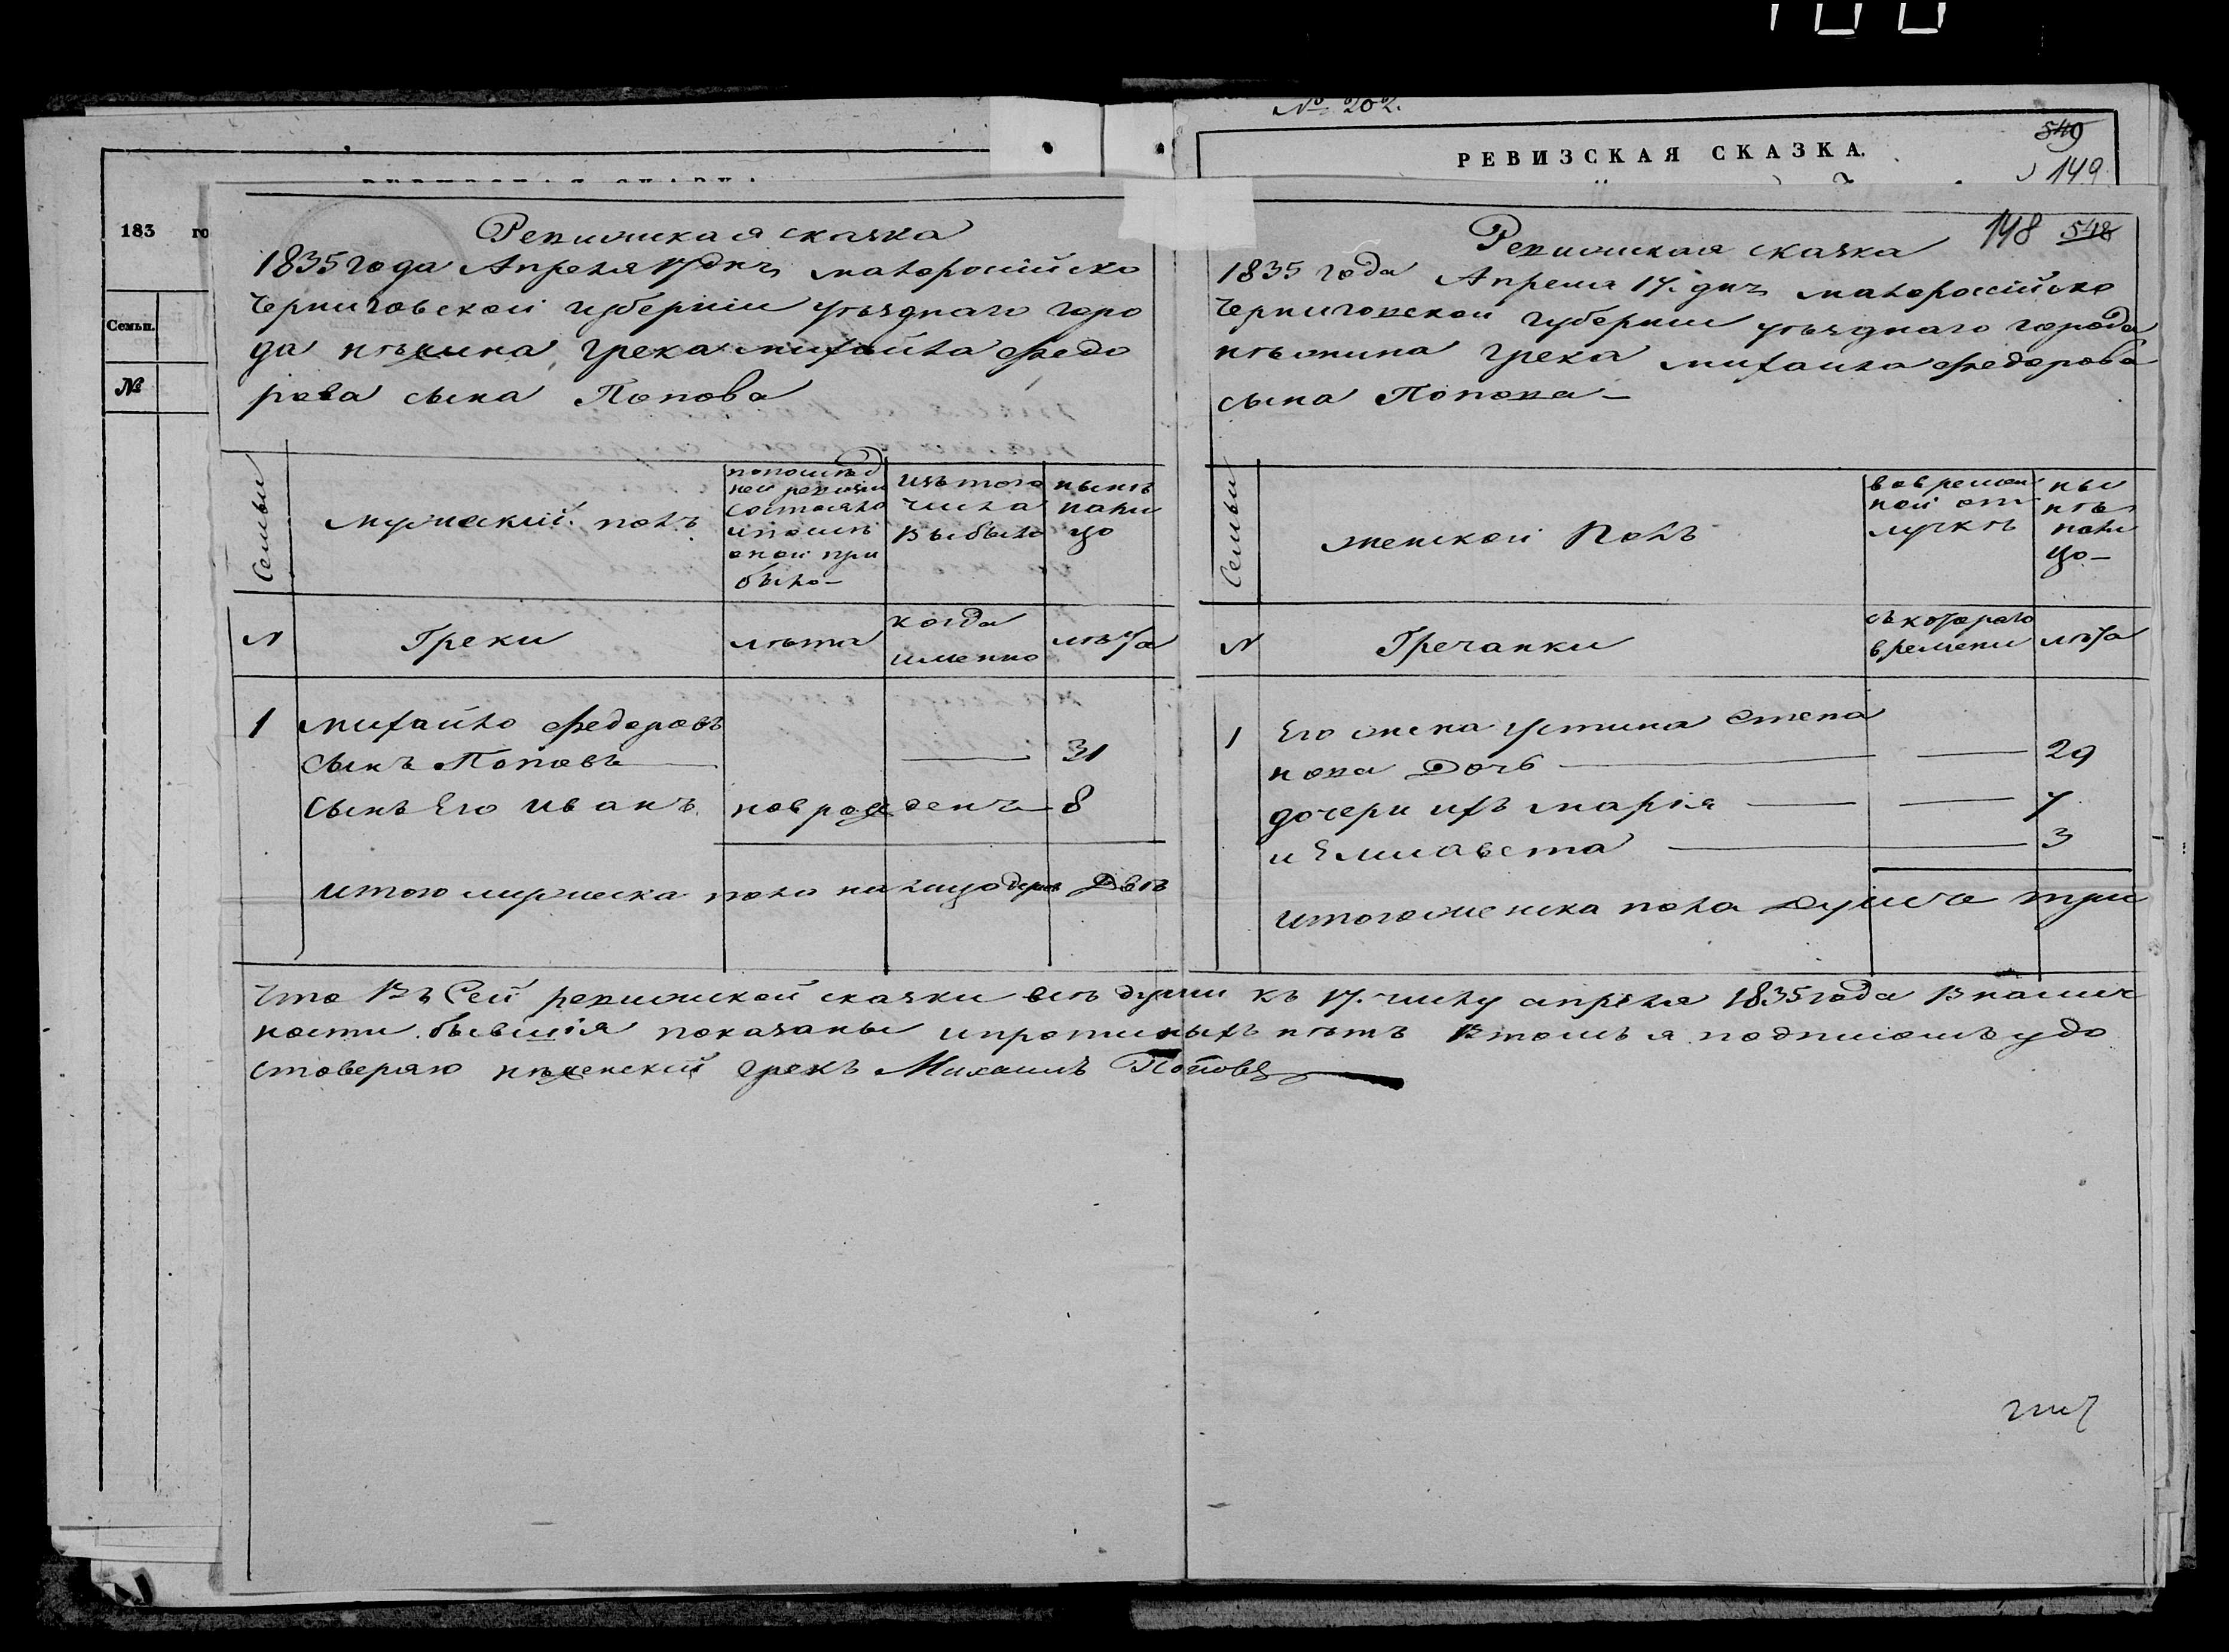 № 202.
РЕВИЗСКАЯ СКАЗКА.
549
149
183 го
Семьи.
№
Ревижская сказка
1835 года Апреля 17 днъ малороссійско
Черниговской губерніи уѣзднаго горо
да нѣжина, грека михайла федо
рова сына Попова
Семьи
мужеский полъ
попослѣд
ней ревизіи
состояло
ипослѣ
оной при
было –
изъ того
числа
выбыло
нынѣ
нали
цо
N
Греки
лѣта
когда
именно
лѣта
1 михайло федоровъ
сынъ Поповъ — — 31
сынъ Его иванъ. новрожденъ — 8
итого мужеска пола на лицо Двѣ
148 548
Ревижская сказка
1835 года Апреля 17. днъ малоросійско
Черниговской губернии уѣзднаго города
нѣжина грека михаила федорова
сына Попова –
Семьи
женской Полъ
вовремен
ной от
лучкѣ
ны
нѣ
нали
цо –
N
Гречанки
съ котораго
времени
лѣта
1 Его жена устина Степа
нова Дочь — — 29
дочери ихъ марія — — 7
и Елисавета — 3
итого женска пола душъ три
Что Въ Сей ревижской сказки всѣ души къ 17. числу апреля 1835 года В налич
ности бывшія показаны ипротиныхъ нѣтъ Втомъ я подписомъ удо
стоверяю нѣженский грекъ Михаилъ Поповъ